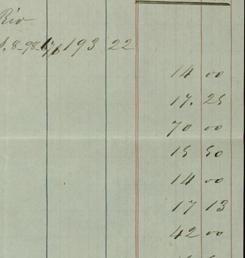 Rio
8-98 193 22
14 00
17. 25
70 00
15 50
14 00
17 13
42 00